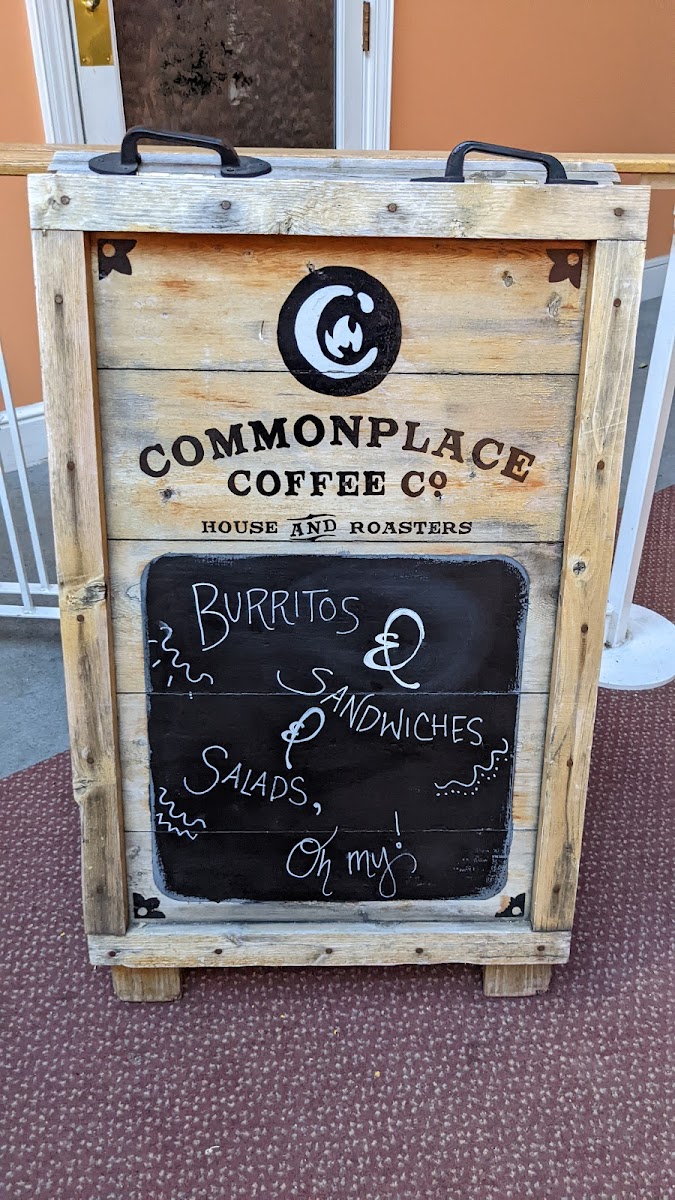 COMMONPLACE
COFFEE Co
HOUSE AND ROASTERS
BURRITOS &
SANDWICHES
&
SALADS,
Oh my!